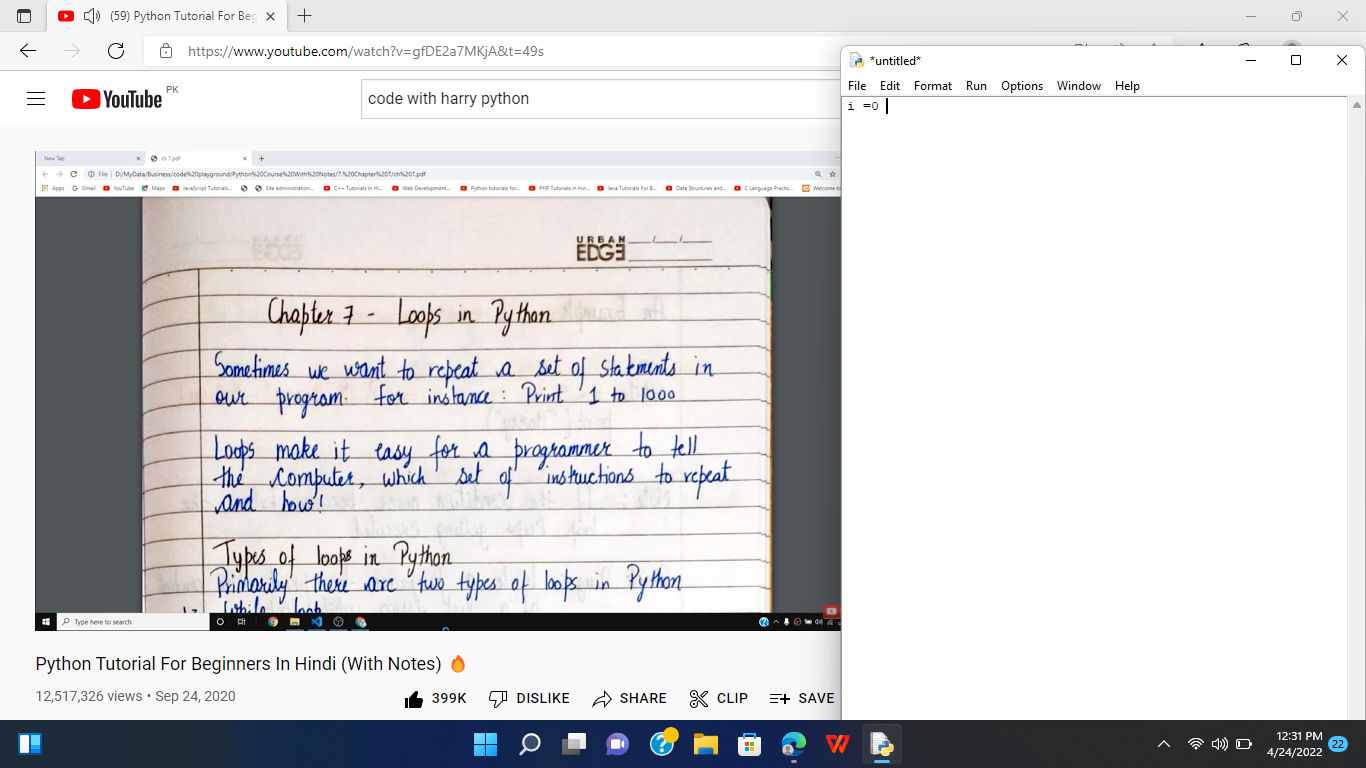 (59) Python Tutorial For Beg
https://www.youtube.com/watch?v=gfDE2a7MKjA&t=49s
YouTube PK
code with harry python
New Tab
ch 7.pdf
File | D:/MyData/Business/code%20playground/Python%20Course%20With%20Notes/7.%20Chapter%207/ch%207.pdf
Apps Gmail YouTube Maps JavaScript Tutorials... Site administration... C++ Tutorials In Hi... Web Development... Python tutorials for... PHP Tutorials in Hin... Java Tutorials For B... Data Structures and... C Language Practic... Welcome to
URBAN
EDGE
Chapter 7 - Loops in Python
Sometimes we want to repeat a set of statements in
our program. For instance : Print 1 to 1000
Loops make it easy for a programmer to tell
the computer, which set of instructions to repeat
and how!
Types of loops in Python
Primarily there are two types of loops in Python
While loop
Type here to search
Python Tutorial For Beginners In Hindi (With Notes)
12,517,326 views • Sep 24, 2020
399K DISLIKE SHARE CLIP SAVE
*untitled*
File Edit Format Run Options Window Help
i =0
12:31 PM
4/24/2022
22